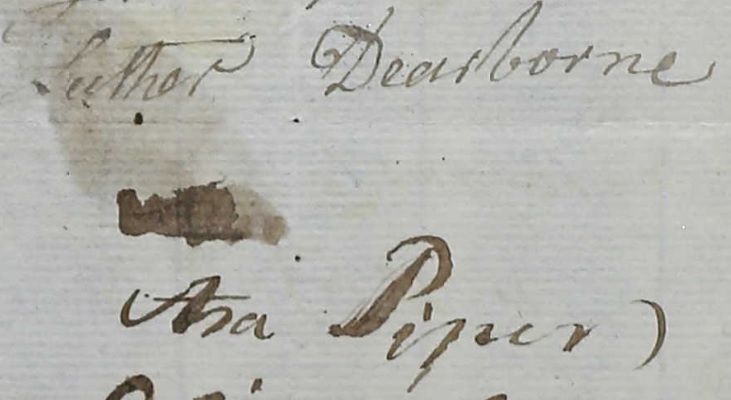 Luther Dearborne
Asa Piper